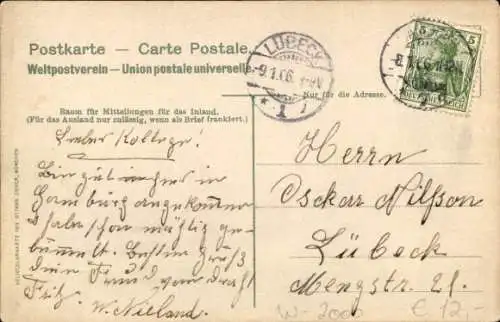 Postkarte — Carte Postale.
Weltpostverein — Union postale universelle.
LÜBECK
9.1.06.
* 1
5
5
DEUTSCHES REICH
Nur für die Adresse.
Raum für Mitteilungen für das Inland.
(Für das Ausland nur zulässig, wenn als Brief frankiert.)
Lieber Kollege!
Bin gut in
Hamburg angekommen
Habe schon mächtig ge-
bummelt. Besten Gruß
Dein Freund
Fritz.
W. Nieland.
Herrn
Oscar Nilsson
Lübeck
Mengstr. 21.
W-2000
€ 12,-